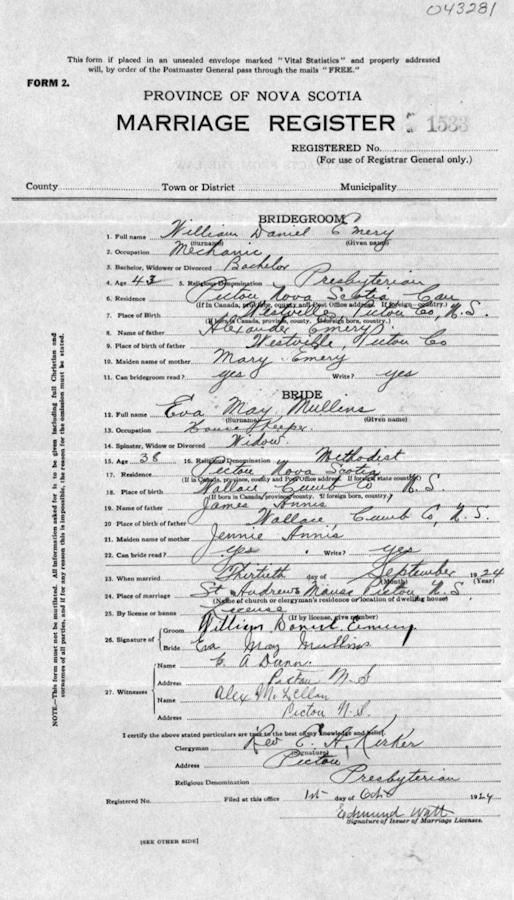 043281
This form if placed in an unsealed envelope marked "Vital Statistics" and properly addressed
will, by order of the Postmaster General pass through the mails "FREE."
FORM 2.
PROVINCE OF NOVA SCOTIA
MARRIAGE REGISTER 1533
REGISTERED No.
(For use of Registrar General only.)
County Town or District Municipality
BRIDEGROOM
1. Full name William Daniel Emery
(Surname) (Given name)
2. Occupation Mechanic
3. Bachelor, Widower or Divorced Bachelor
4. Age 43 5. Religious Denomination Presbyterian
6. Residence Pictou Nova Scotia Can
(If in Canada, province, county and Post Office address. If foreign country.)
7. Place of Birth Westville, Pictou Co, N.S.
(If born in Canada, province, county. If foreign born, country.)
8. Name of father Alexander Emery
9. Place of birth of father Westville, Pictou Co
10. Maiden name of mother Mary Emery
11. Can bridegroom read? yes Write? yes
BRIDE
12. Full name Eva May Mullins
(Surname) (Given name)
13. Occupation House Keeper
14. Spinster, Widow or Divorced Widow
15. Age 38 16. Religious Denomination Methodist
17. Residence Pictou Nova Scotia
(If in Canada, province, county and Post Office address. If foreign state country)
18. Place of birth Wallace, Cumb Co N.S.
(If born in Canada, province, county. If foreign born, country)
19. Name of father James Annis
20. Place of birth of father Wallace, Cumb Co, N.S.
21. Maiden name of mother Jennie Annis
22. Can bride read? yes Write? yes
23. When married Thirtieth day of September 1924
(Month) (Year)
24. Place of marriage St. Andrews Manse Pictou N.S.
(Name of church or clergyman's residence or location of dwelling house)
25. By license or banns License
(If by license, give number)
26. Signature of Groom William Daniel Emery
Bride Eva May Mullins
27. Witnesses
Name A Dunn
Address Pictou N.S
Name Alex McLellan
Address Pictou N.S.
I certify the above stated particulars are true to the best of my knowledge and belief.
Clergyman Rev E. A. Kirker
(Signature)
Address Pictou
Religious Denomination Presbyterian
Registered No. Filed at this office 1st day of Oct 1924
Edmund Watt
Signature of Issuer of Marriage Licenses.
[SEE OTHER SIDE]
NOTE.—This form must not be mutilated. All information asked for is to be given including full Christian and
surnames of all parties, and if for any reason this is impossible, the reason for the omission must be stated.